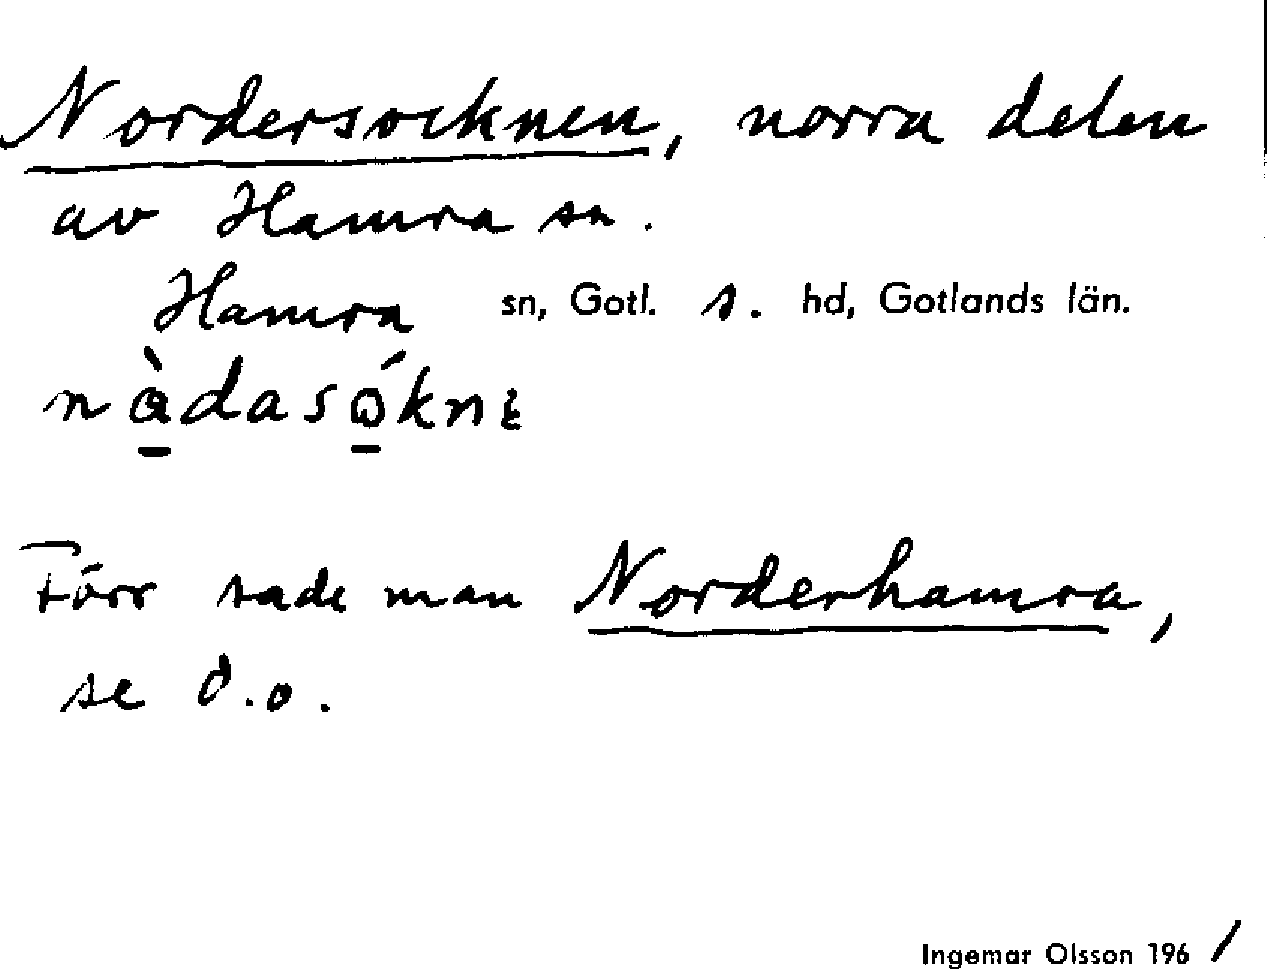 Nordersocknen, norra delen
av Hamra sn.
Hamra sn, Gotl. s. hd, Gotlands län.
Förr sade man Norderhamra,
se d.o.
Ingemar Olsson 1961